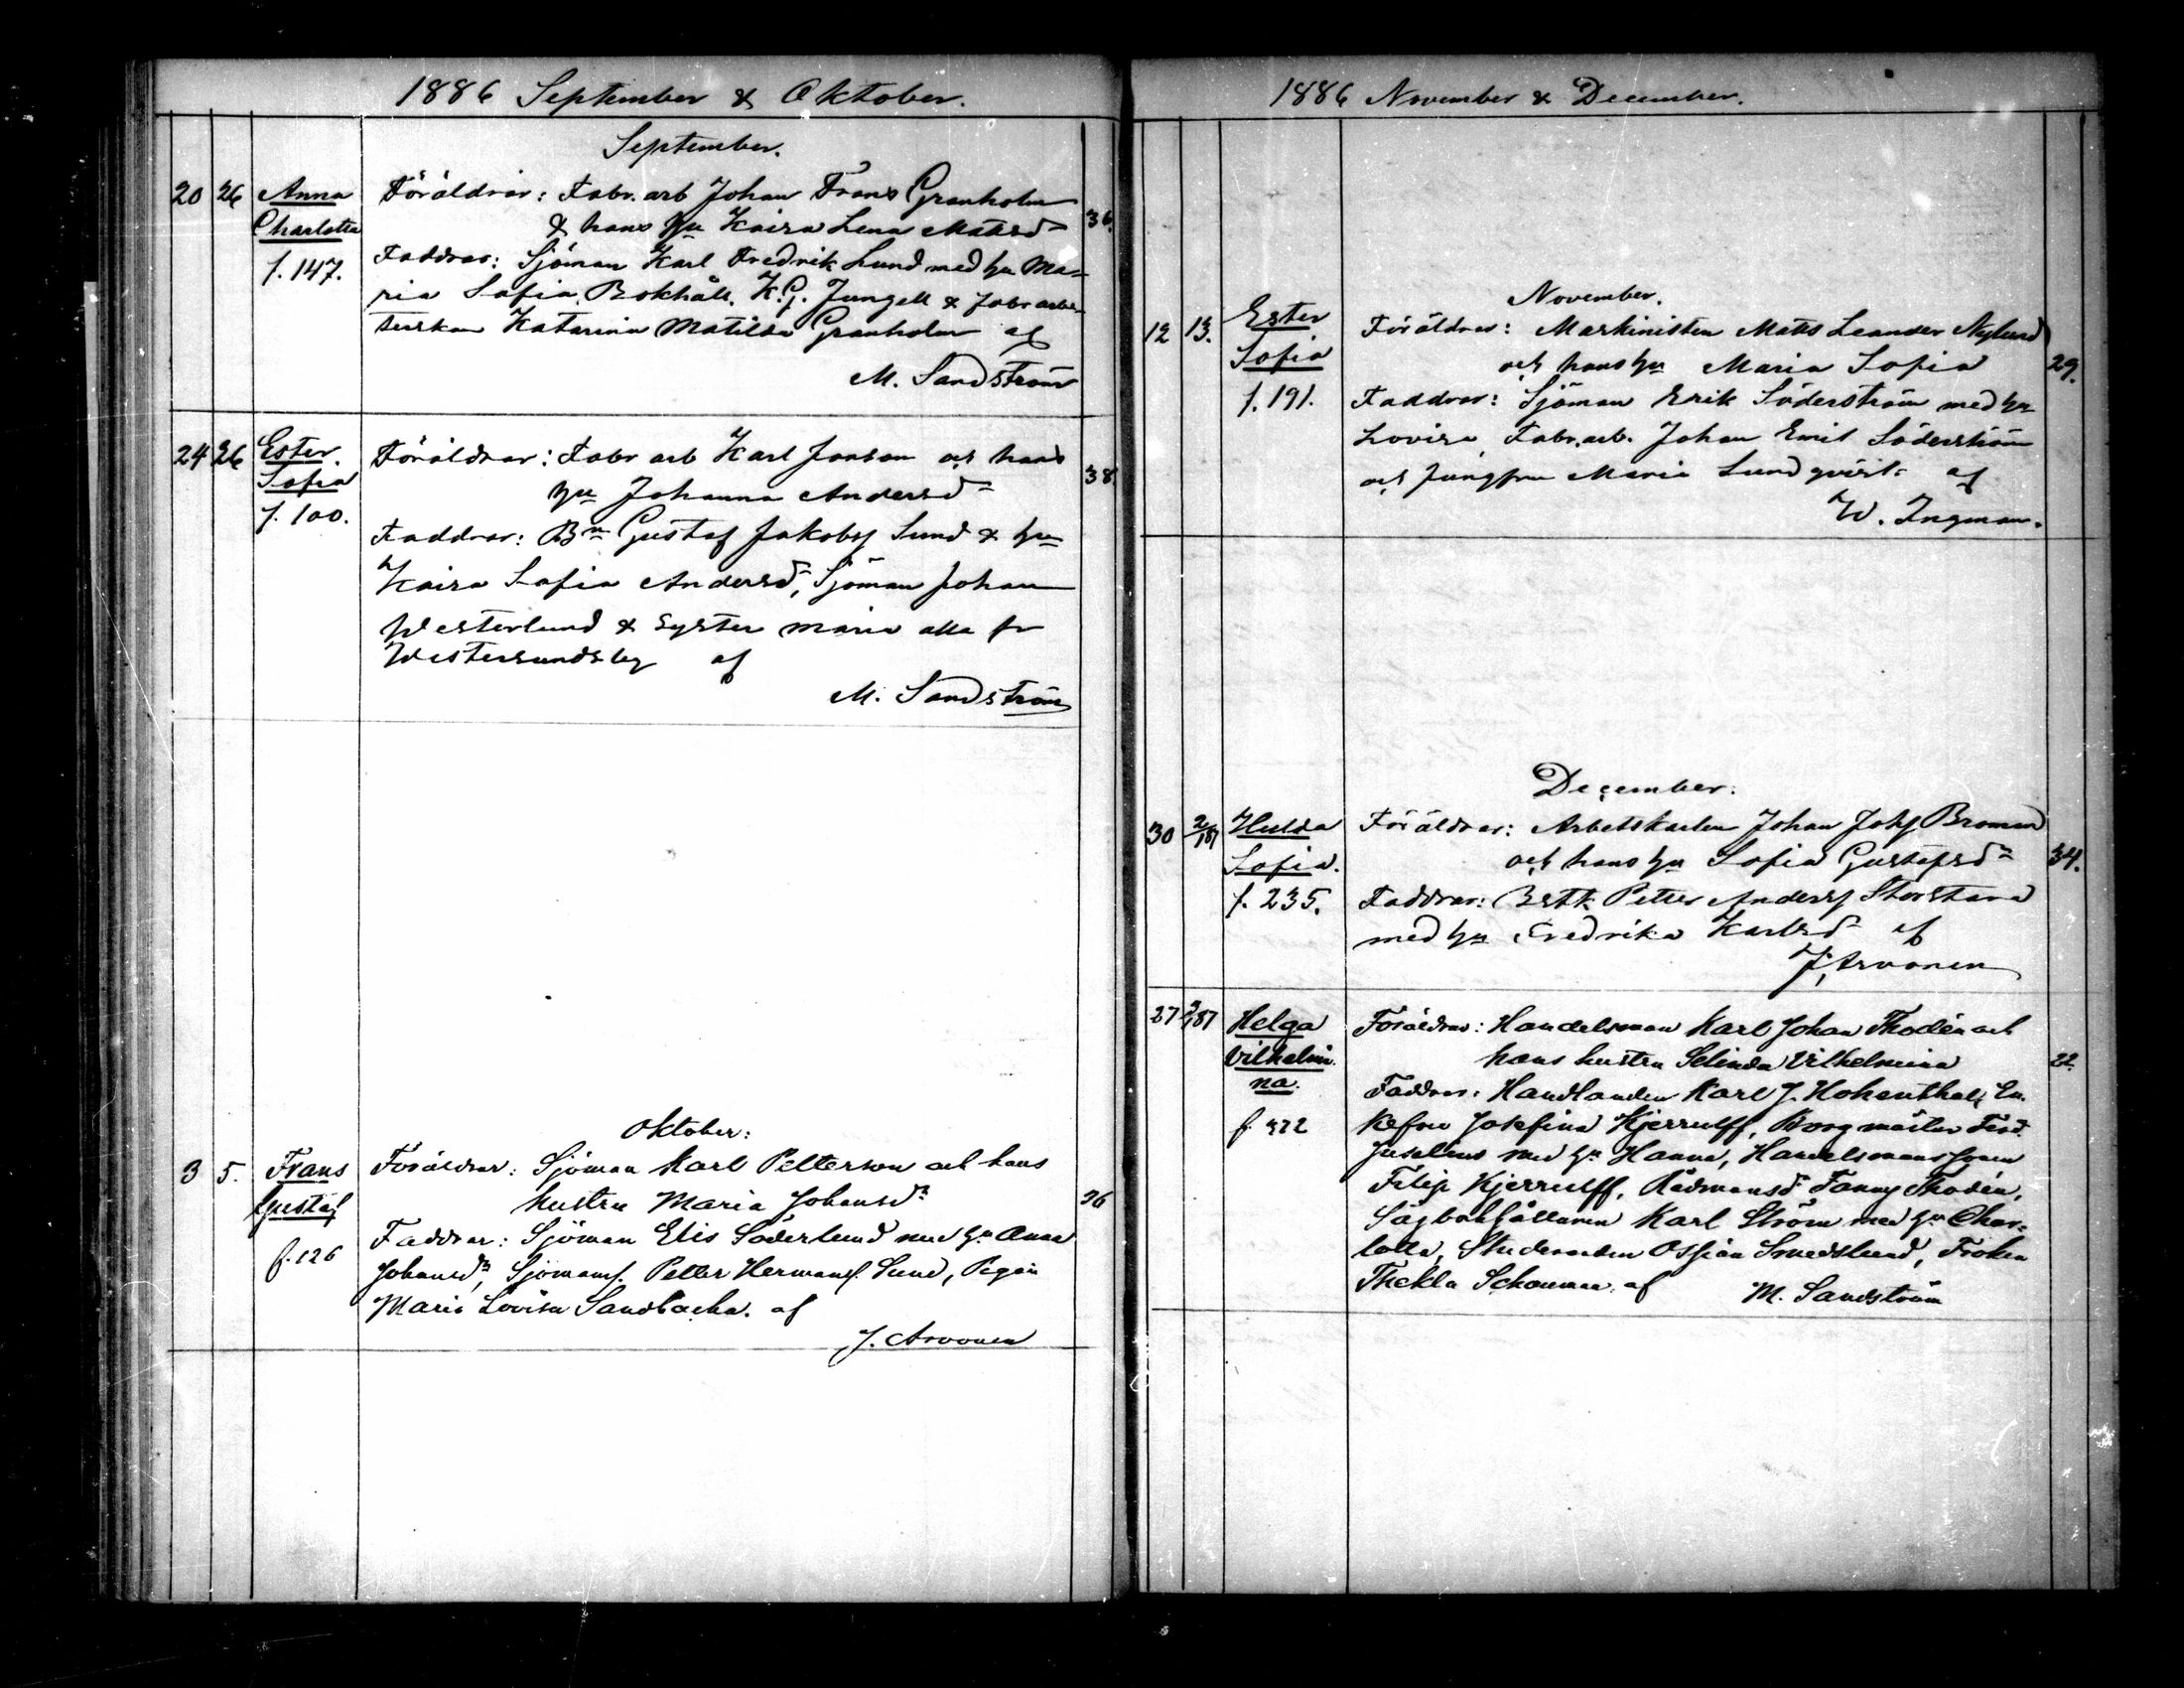 1886 September & Oktober.
September.
20 26 Anna Föräldrar: Fabr. arb Johan Frans Granholm
Charlotta & hans hu Kaisa Lena Matsd 36.
f. 147. Faddrar: Sjöman Karl Fredrik Lund med hu Ma-
ria Sofia, Bokhåll. K. G. Jungell & fabr arbe-
terskan Katarina Matilda Granholm af
M. Sandström
24 26 Ester Föräldrar: Fabr arb Karl Jonson och hans
Sofia hu Johanna Andersd 38.
f. 100. Faddrar: Bn Gustaf Jakobsf Sund & hu
Kaisa Sofia Andersd, Sjöman Johan
Westerlund & syster Maria alla fr
Westersundsby af
M. Sandström
Oktober:
3 5. Frans Föräldrar: Sjöman Karl Petterson och hans
Gustaf hustru Maria Johansdr 26
f. 126 Faddrar: Sjöman Elis Söderlund med hu Anna
Johansdr, Sjömansf. Petter Hermansf. Sund, Pigan
Maria Lovisa Sandbacka. af
J. Arvonen
1886 November & December.
November.
12 13. Ester Föräldrar: Maskinisten Matts Leander Nylund
Sofia och hans hu Maria Sofia 29.
f. 191. Faddrar: Sjöman Erik Söderström med hu
Lovisa, Fabr. arb. Johan Emil Söderström
och Jungfru Maria Lundqvist af
W. Ingman.
December.
30 2/1 87 Hulda Föräldrar: Arbetskarlen Johan Johsf Broman
Sofia. och hans hu Sofia Gustafsdr 34.
f. 235. Faddrar: Bstk Petter Andersf Storstara
med hu Fredrika Karlsd af
J. Arvonen
27 2/1 87 Helga Föräldrar: Handelsman Karl Johan Thodén och
Vilhelmi- hans hustru Selinda Vilhelmina 22.
na. Faddrar: Handlanden Karl J. Hohenthal, En-
f. 322 kefru Josefina Hjerrulff, Borgmästar Ferd.
Juselius med hu Hanna, Handelsmanssonen
Filip Kjerrulff, Rådmansd Fanny Thodén,
Sågbokhållaren Karl Ström med hu Char-
lotta, Studeranden Ossian Smedslund, Fröken
Thekla Schauman. af M. Sandström